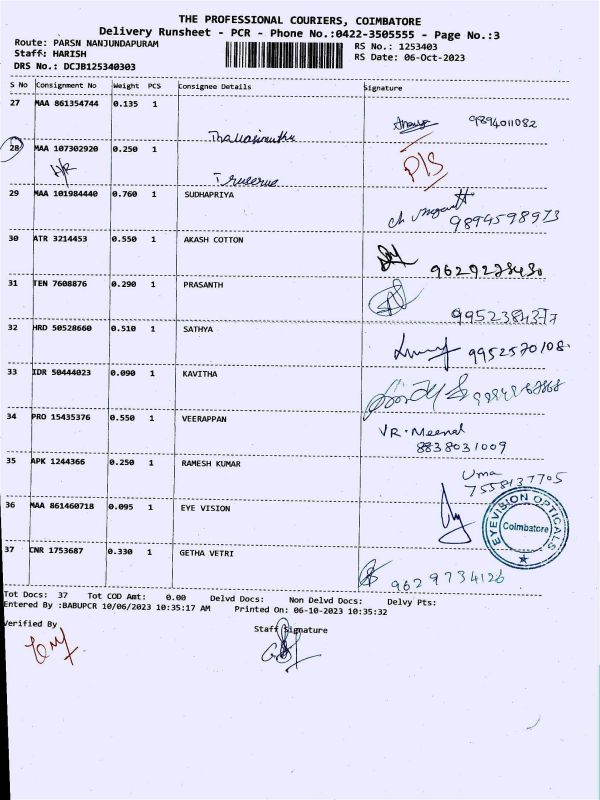 THE PROFESSIONAL COURIERS, COIMBATORE
Delivery Runsheet - PCR - Phone No.:0422-3505555 - Page No.:3
Route: PARSN NANJUNDAPURAM
RS No.: 1253403
Staff: HARISH
RS Date: 06-Oct-2023
DRS No.: DCJB125340303
S No Consignment No Weight PCS Consignee Details Signature
27 MAA 861354744 0.135 1
9894011082
28 MAA 107302920 0.250 1
29 MAA 101984440 0.760 1 SUDHAPRIYA
9894598973
30 ATR 3214453 0.550 1 AKASH COTTON
31 TEN 7608876 0.290 1 PRASANTH
32 HRD 50528660 0.510 1 SATHYA
9952570108
33 IDR 50444023 0.090 1 KAVITHA
34 PRO 15435376 0.550 1 VEERAPPAN
VR. Meenal
8838031009
35 APK 1244366 0.250 1 RAMESH KUMAR
Uma
7558137705
36 MAA 861460718 0.095 1 EYE VISION
EYEVISION OPTICALS
Coimbatore
37 CNR 1753687 0.330 1 GETHA VETRI
9629734126
Tot Docs: 37 Tot COD Amt: 0.00 Delvd Docs: Non Delvd Docs: Delvy Pts:
Entered By :BABUPCR 10/06/2023 10:35:17 AM Printed On: 06-10-2023 10:35:32
Verified By
Staff Signature